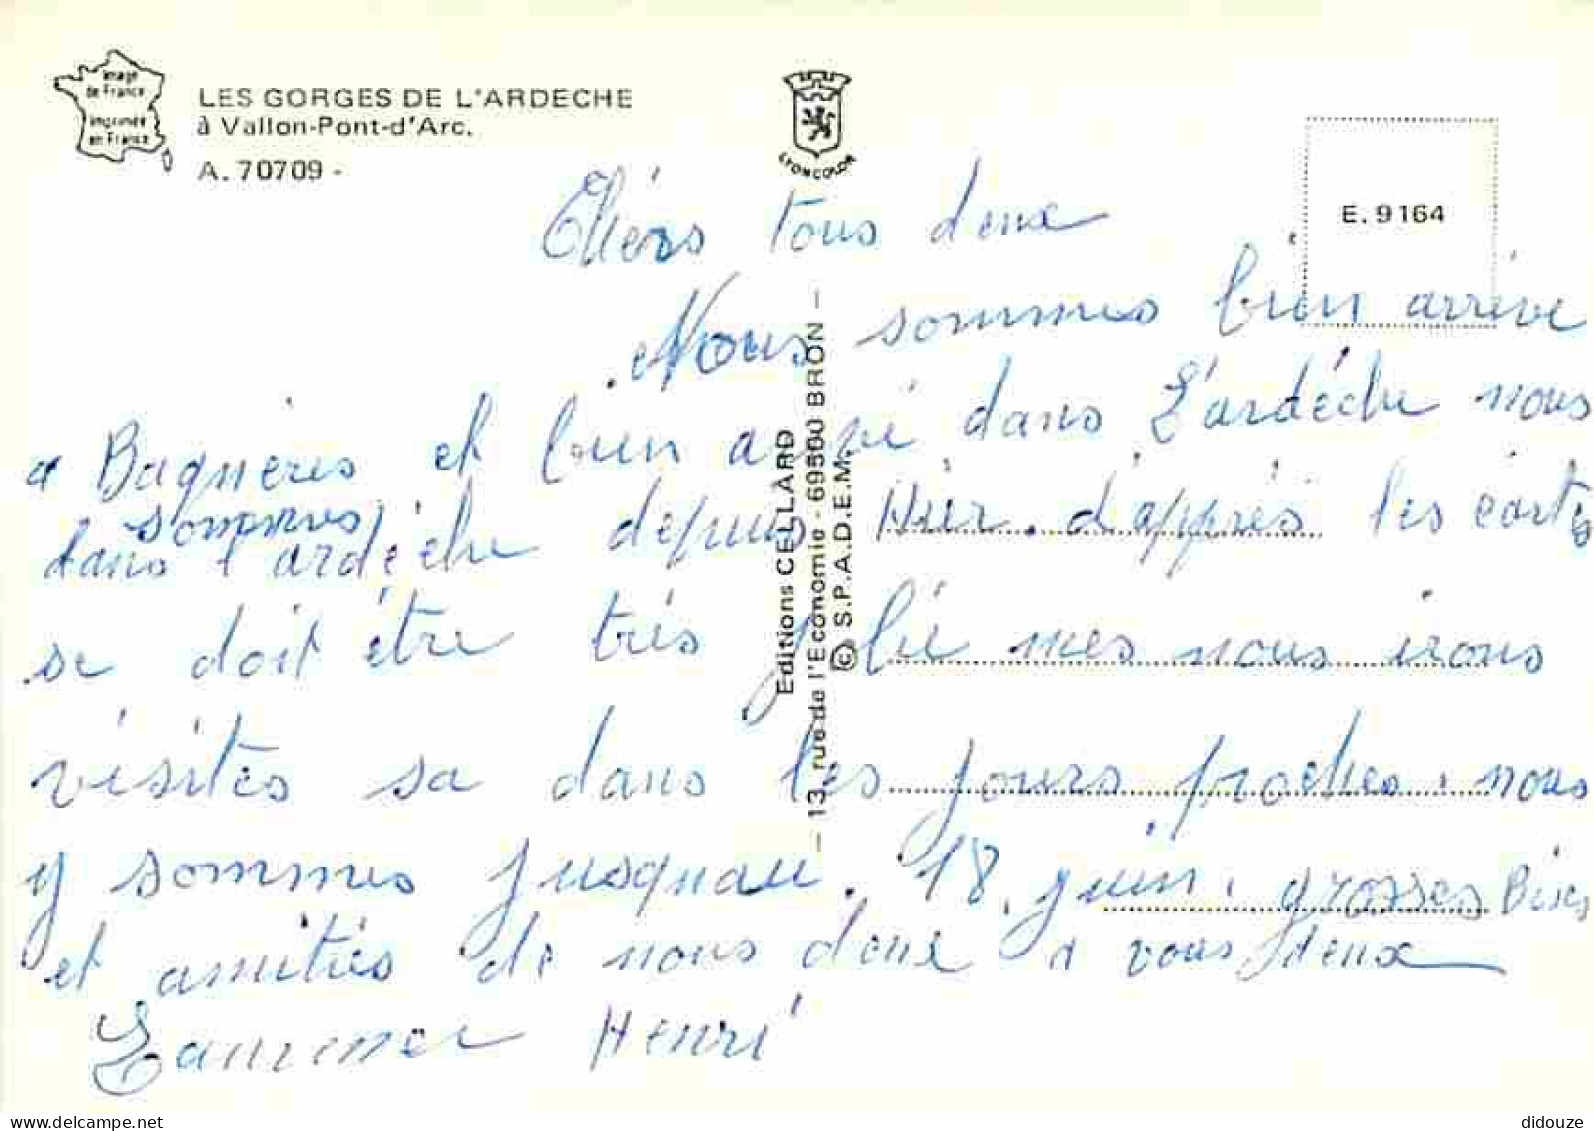 Image
de France
imprimée
en France
LES GORGES DE L'ARDECHE
à Vallon-Pont-d'Arc.
A. 70709 -
LYONCOLOR
E. 9164
Editions CELLARD
— 13, rue de l'Economie - 69500 BRON —
© S.P.A.D.E.M.
Chèrs tous deux
Nous sommes bien arrivé
a Bagnères et bien arrivé dans L'ardéche nous
sommes
dans l'ardéche depuis Hier. d'apprés les cartes
se doit étre trés jolie mes nous irons
visités sa dans les jours proches. nous
y sommes jusquau. 18. juin. grosses Bises
et amitiés de nous deux a vous deux
Henri
www.delcampe.net
didouze